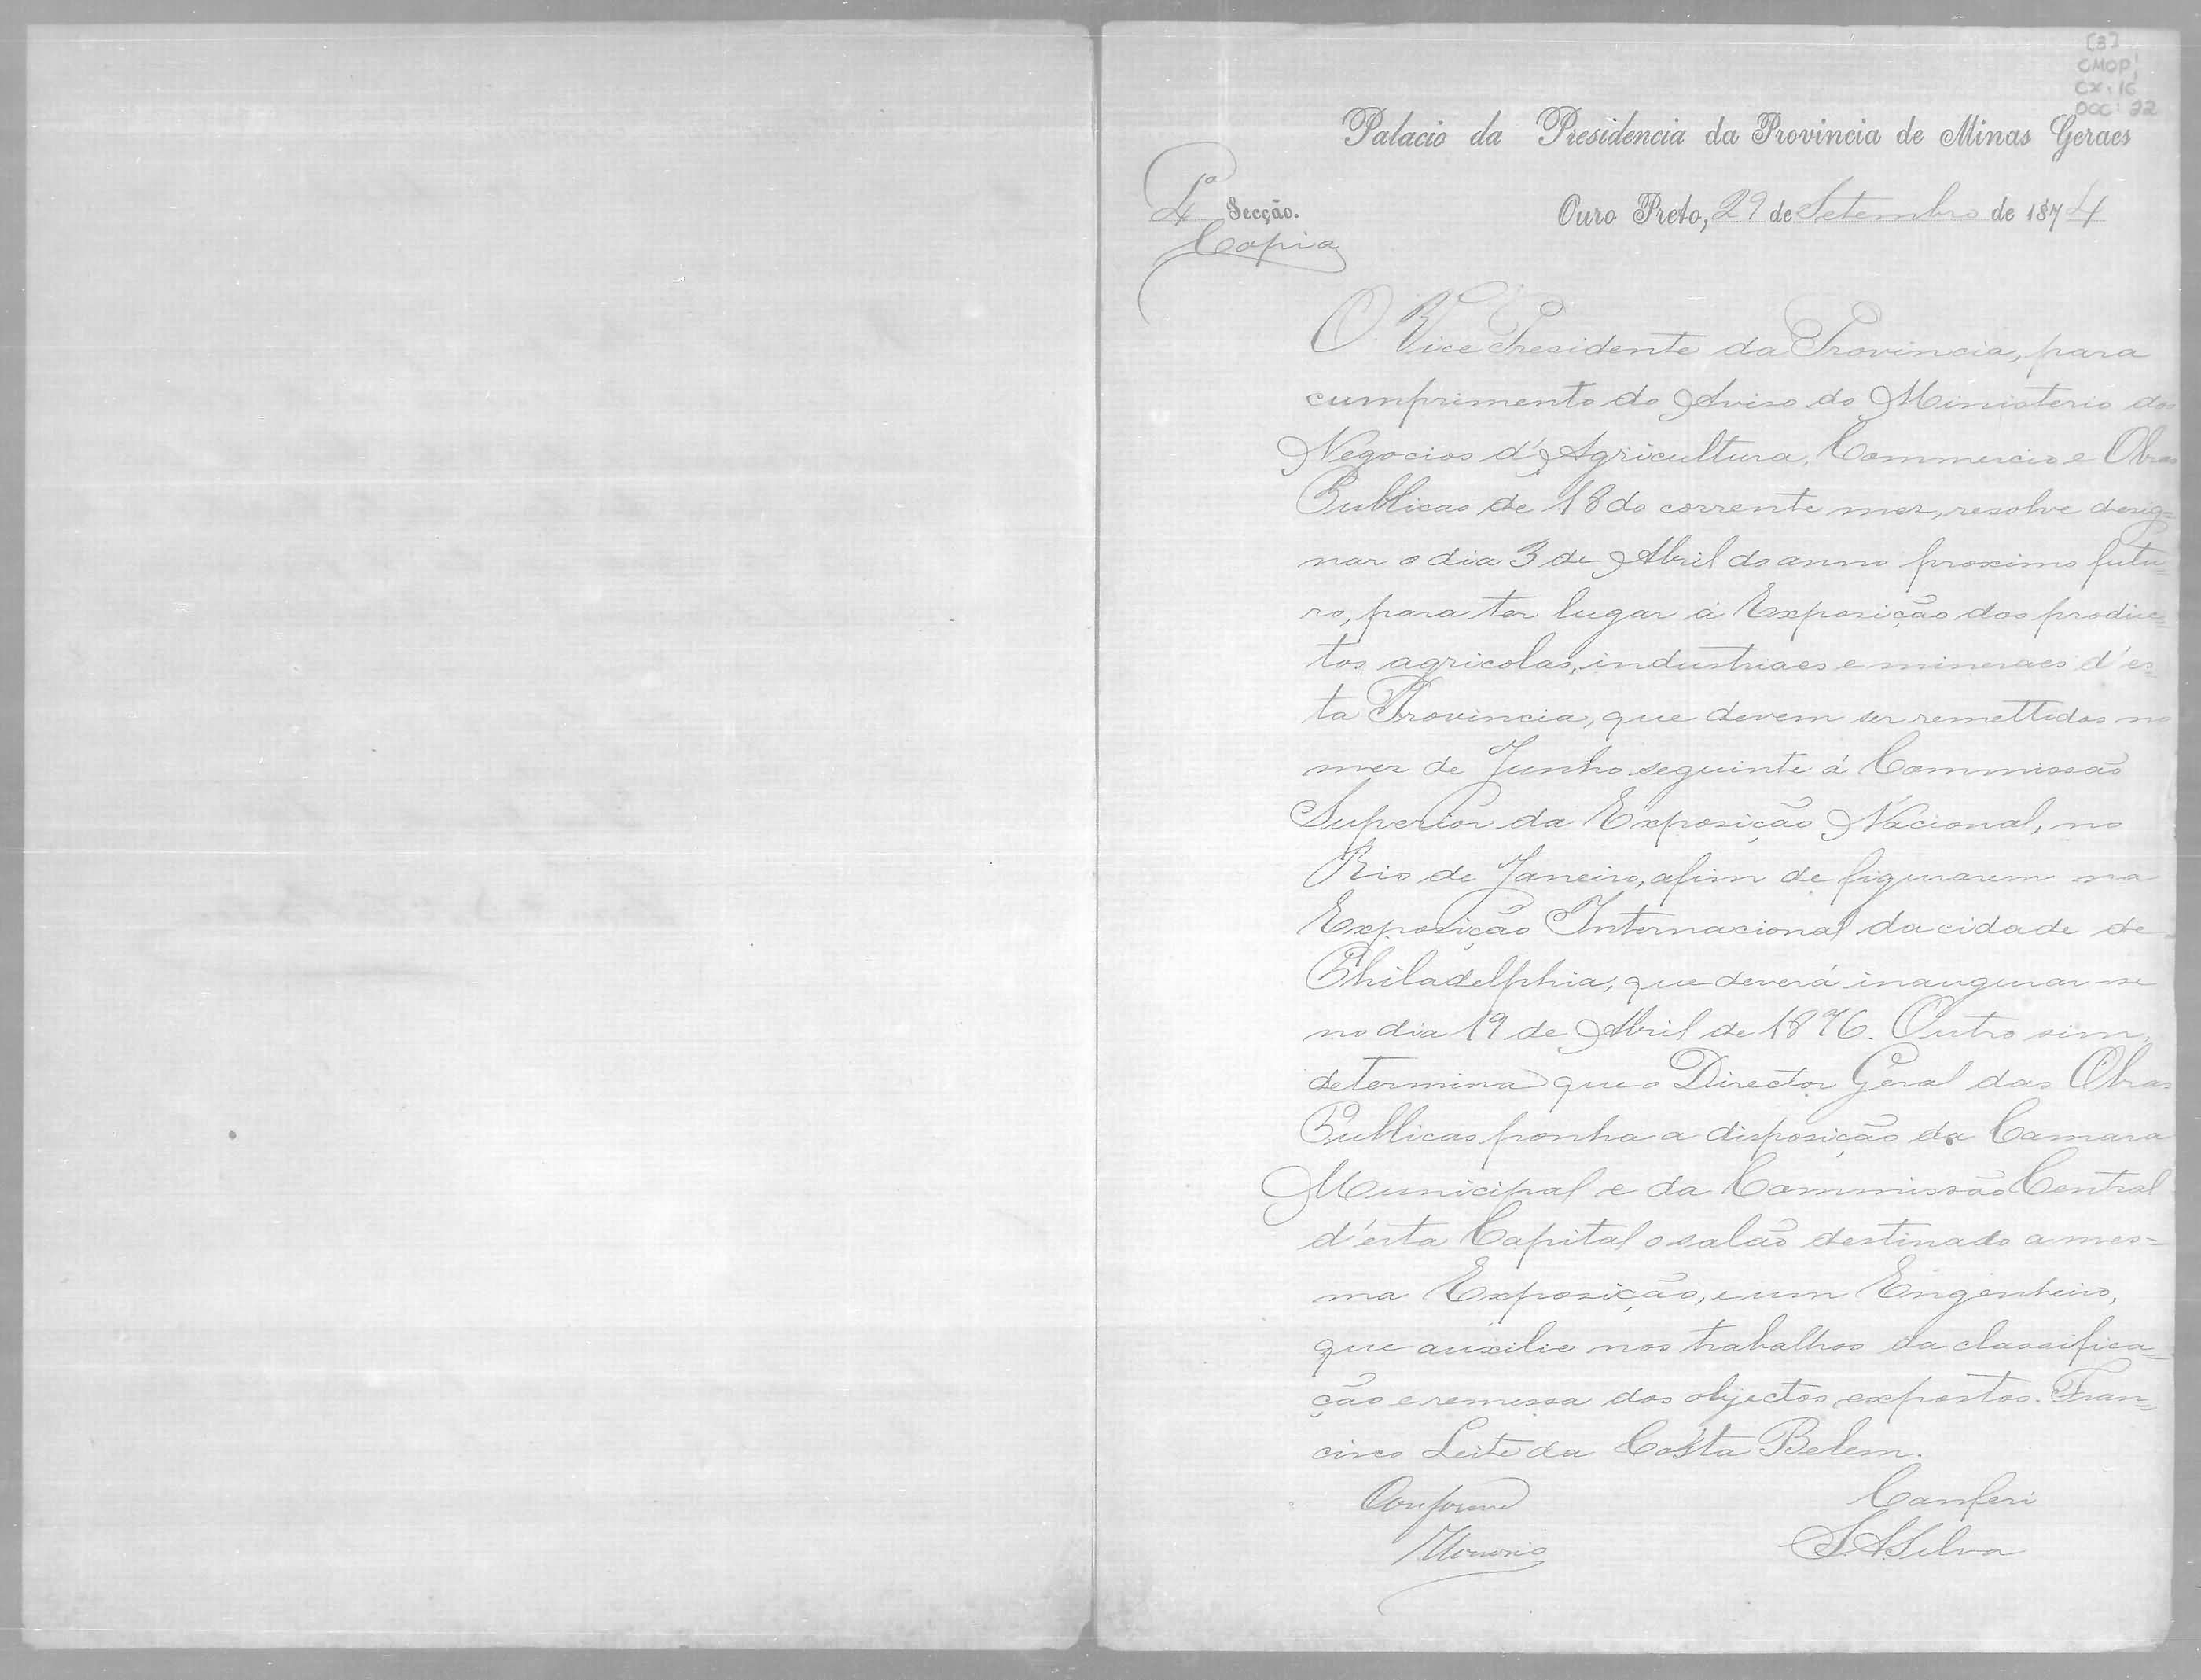 [3]
CMOP,
CX: 16
DOC: 32
Palacio da Presidencia da Provincia de Minas Geraes
4ª Secção.
Ouro Preto, 29 de Setembro de 1874
Copia
O Vice Presidente da Provincia, para
cumprimento do Aviso do Ministerio dos
Negocios d'Agricultura, Commercio e Obras
Publicas de 18 do corrente mez, resolve desig=
nar o dia 3 de Abril do anno proximo futu=
ro, para ter lugar á Exposição dos produc=
tos agricolas, industriaes e mineraes d'es=
ta Provincia, que devem ser remettidos no
mez de Junho seguinte á Commissão
Superior da Exposição Nacional, no
Rio de Janeiro, afim de figurarem na
Exposição Internacional da cidade de
Philadelphia, que deverá inaugurar-se
no dia 19 de Abril de 1876. Outro sim,
determina que o Director Geral das Obras
Publicas ponha a disposição da Camara
Municipal e da Commissão Central
d'esta Capital o salão destinado a mes=
ma Exposição, e um Engenheiro,
que auxilie nos trabalhos da classifica=
ção e remessa dos objectos expostos. Fran=
cisco Leite da Costa Belem.
Conforme
Conferi
S. A. Silva